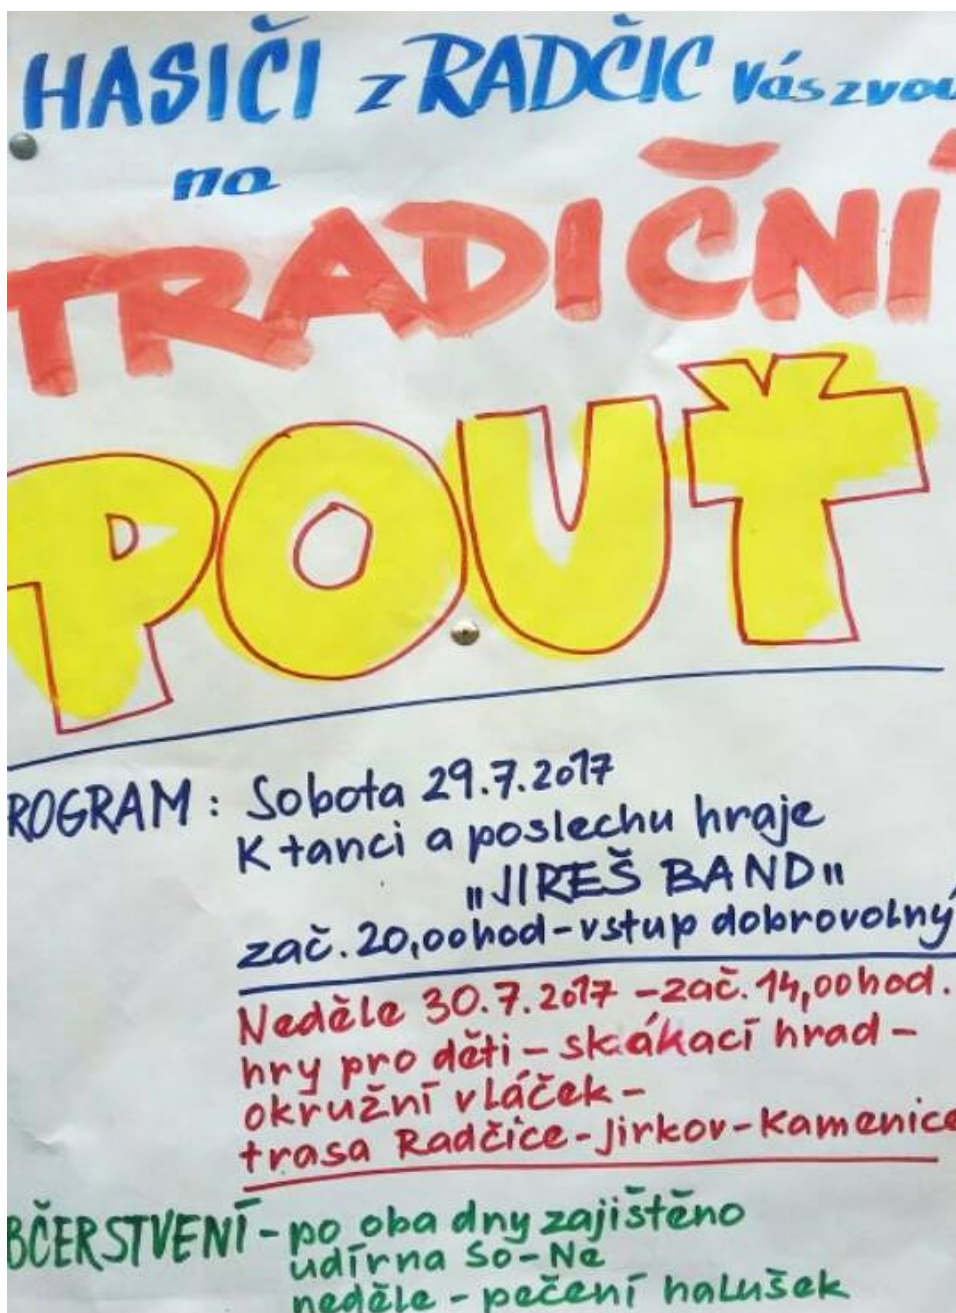 HASIČI z RADČIC Vás zvou
na
TRADIČNÍ
POUŤ
ROGRAM: Sobota 29.7.2017
K tanci a poslechu hraje
"JIREŠ BAND"
zač. 20,00hod-vstup dobrovolný
Neděle 30.7.2017 -zač. 14,00hod.
hry pro děti - skákací hrad-
okružní vláček-
trasa Radčice-Jirkov-Kamenice
BČERSTVENÍ-po oba dny zajištěno
udírna So-Ne
neděle - pečení halušek